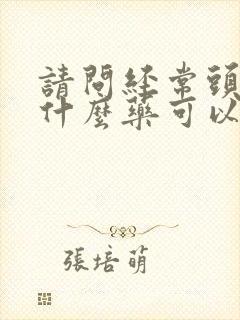 請問經常頭
什麼藥可以
張培萌